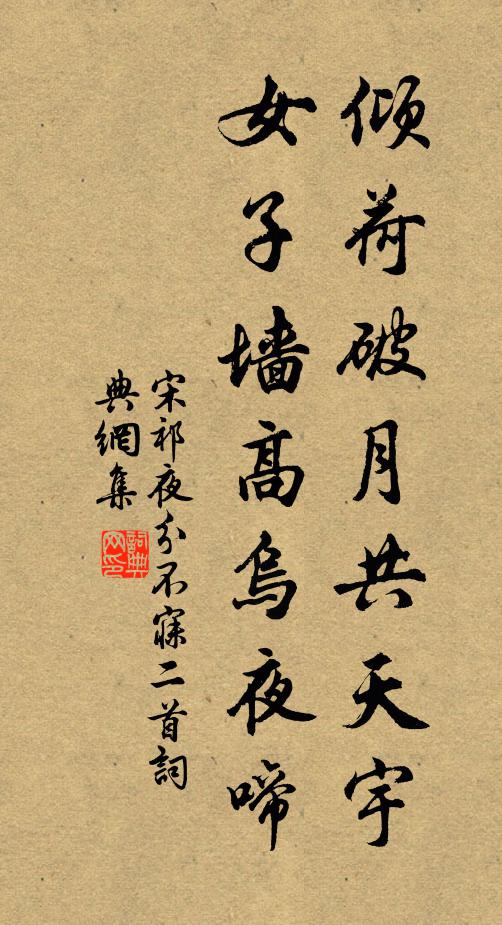 倾荷破月共天宇
女子墙高乌夜啼
宋祁夜分不寐二首词
典網集
詞典網印